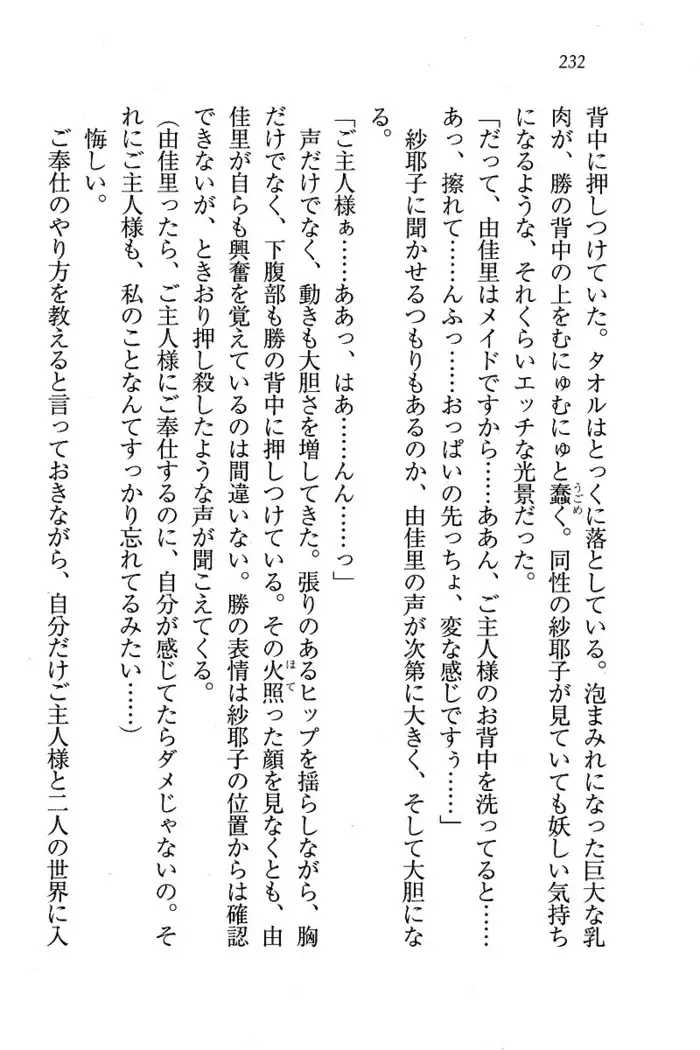 232
背中に押しつけていた。タオルはとっくに落としている。泡まみれになった巨大な乳
肉が、勝の背中の上をむにゅむにゅと蠢く。同性の紗耶子が見ていても妖しい気持ち
になるような、それくらいエッチな光景だった。
「だって、由佳里はメイドですから……ああん、ご主人様のお背中を洗ってると……
あっ、擦れて……んふっ……おっぱいの先っちょ、変な感じですぅ……」
紗耶子に聞かせるつもりもあるのか、由佳里の声が次第に大きく、そして大胆にな
る。
「ご主人様ぁ……ああっ、はあ……んん……っ」
声だけでなく、動きも大胆さを増してきた。張りのあるヒップを揺らしながら、胸
だけでなく、下腹部も勝の背中に押しつけている。その火照った顔を見なくとも、由
佳里が自らも興奮を覚えているのは間違いない。勝の表情は紗耶子の位置からは確認
できないが、ときおり押し殺したような声が聞こえてくる。
（由佳里ったら、ご主人様にご奉仕するのに、自分が感じてたらダメじゃないの。そ
れにご主人様も、私のことなんてすっかり忘れてるみたい……）
悔しい。
ご奉仕のやり方を教えると言っておきながら、自分だけご主人様と二人の世界に入